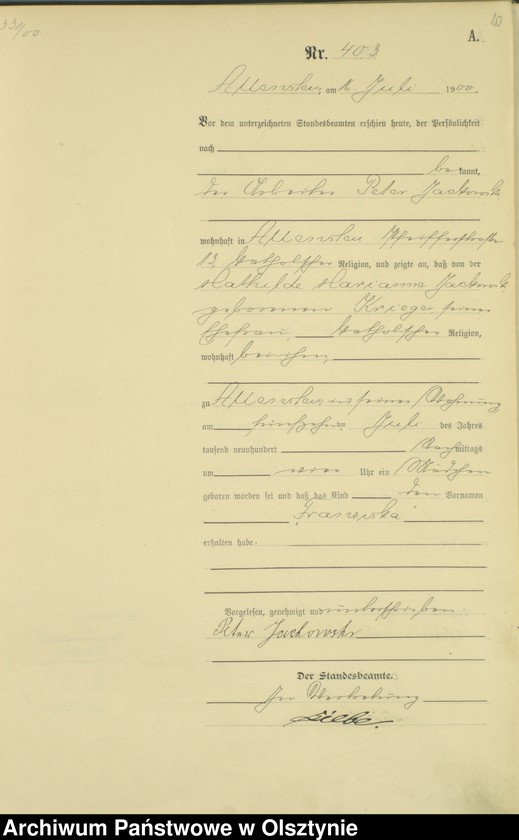 331/00
10
A.
Nr. 403
Allenstein, am 16. Juli 1900.
Vor dem unterzeichneten Standesbeamten erschien heute, der Persönlichkeit
nach
bekannt,
der Arbeiter Peter Jackowski
wohnhaft in Allenstein Pfeifferstraße
13, katholischer Religion, und zeigte an, daß von der
Mathilde Marianne Jackowski
geborenen Krieger seiner
Ehefrau, katholischer Religion,
wohnhaft bei ihm,
zu Allenstein in seiner Wohnung
am fünfzehnten Juli des Jahres
tausend neunhundert Nachmittags
um Uhr ein Mädchen
geboren worden sei und daß das Kind den Vornamen
Franziska
erhalten habe.
Vorgelesen, genehmigt und unterschrieben
Peter Jackowski
Der Standesbeamte.
In Vertretung
Liebe.
Archiwum Państwowe w Olsztynie